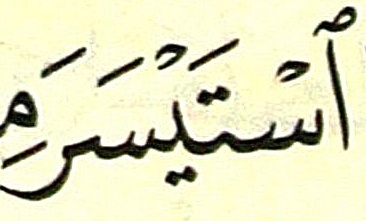 ٱسْتَيْسَرَ مِ